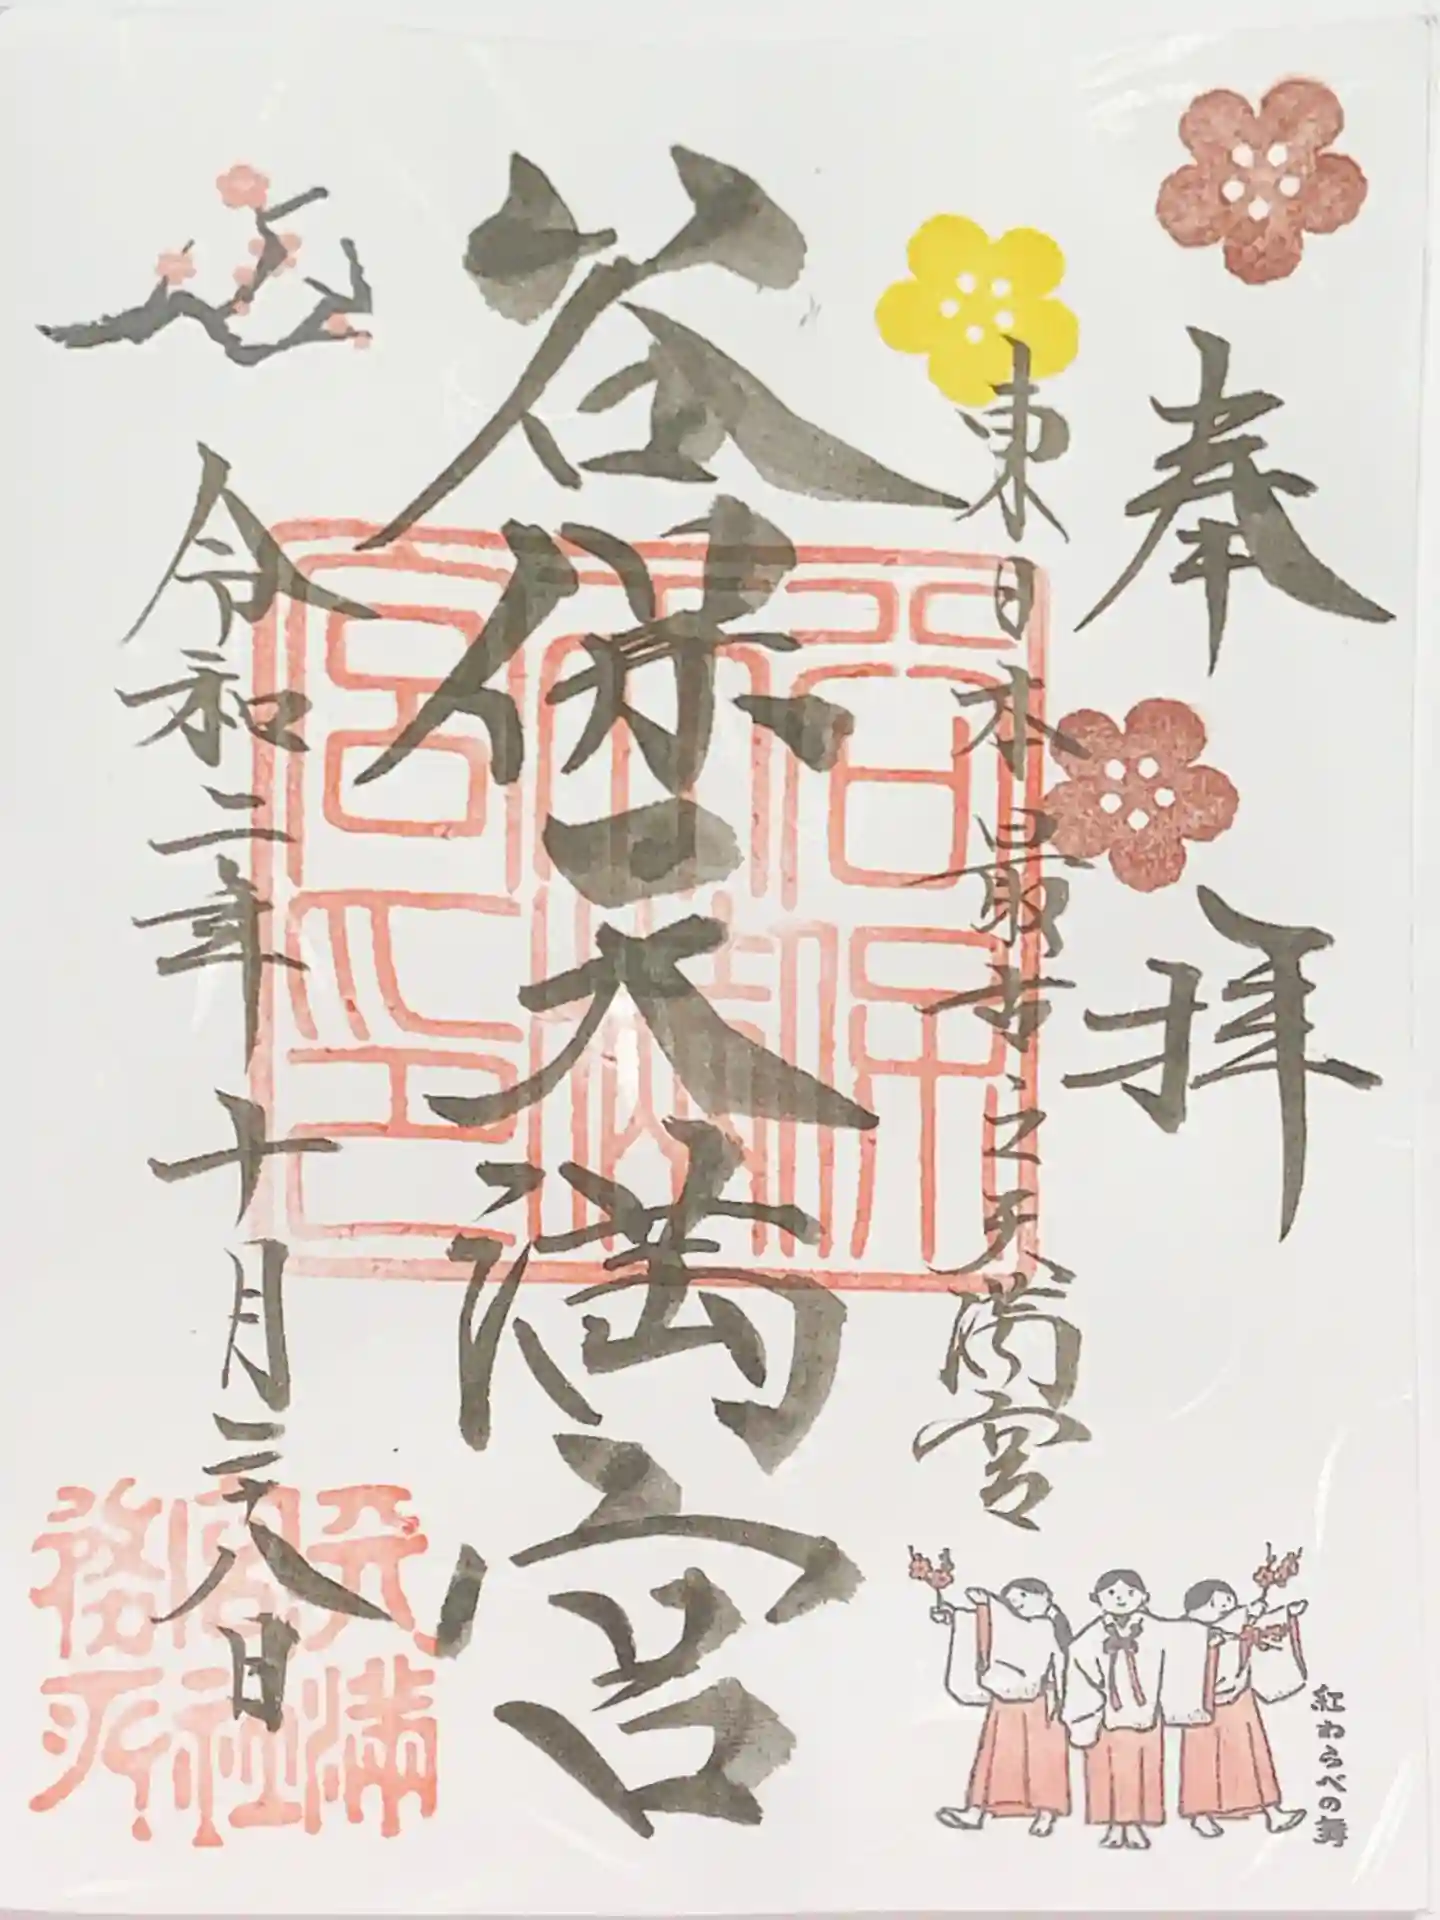 奉拝
東日本最古之天満宮
谷保天満宮
令和二年十月二十八日
谷保天満宮印
天満宮社務所
紅わらべの舞